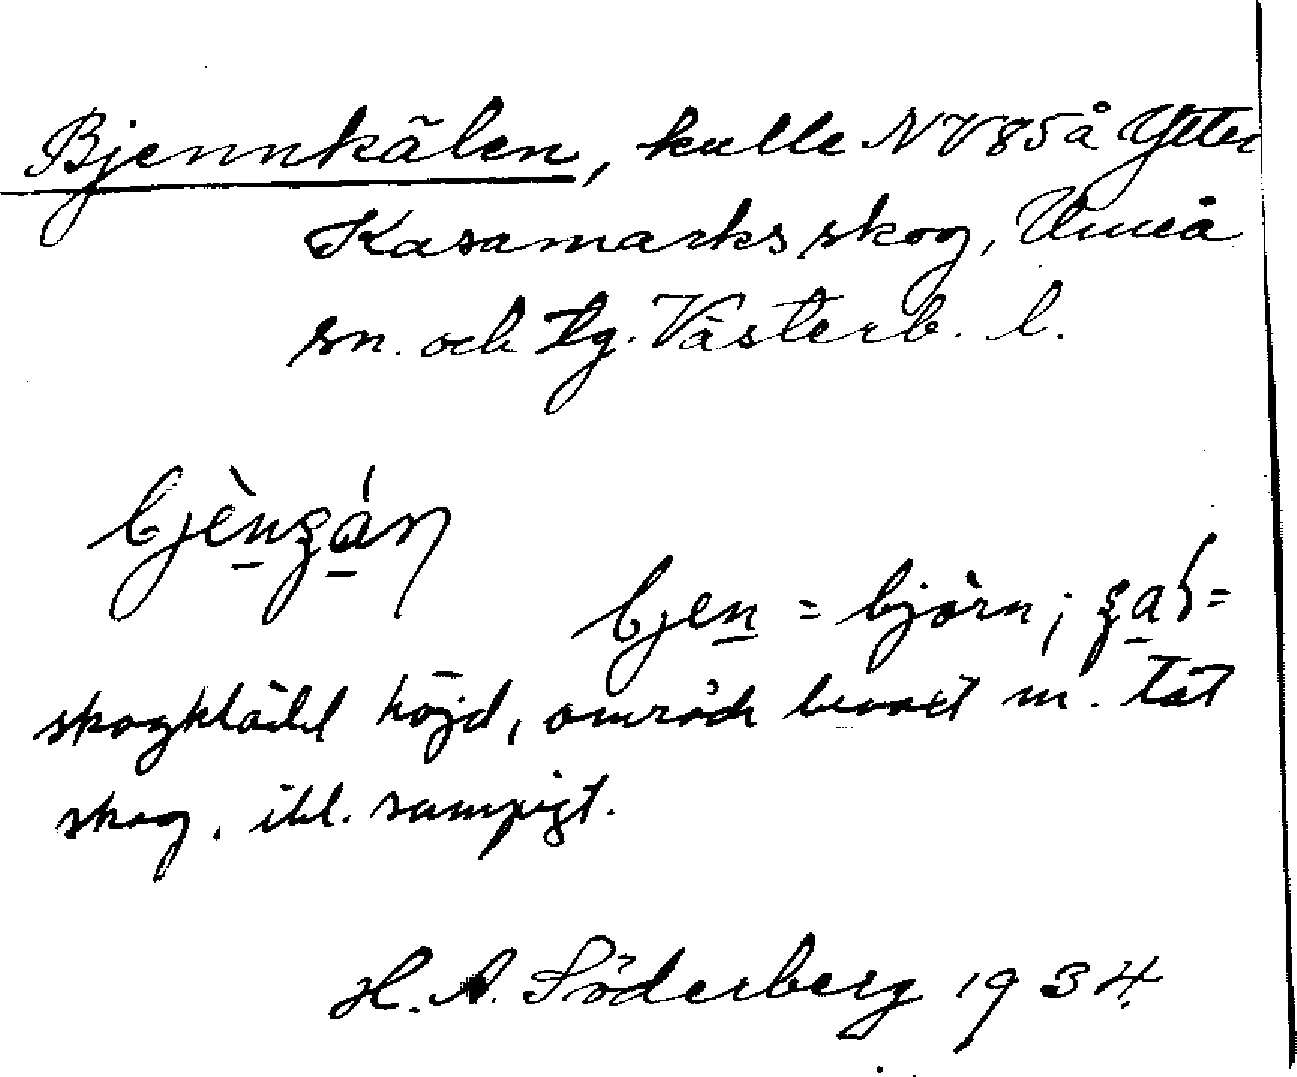 Bjennkålen, kulle NV 85 å Ytter
Kasamarks skog, Umeå
sn. och tg. Västerb. l.
bjen = björn;
skogklädd höjd, område bevuxet m. tät
skog, ibl. sumpigt.
H. A. Söderberg 1934.